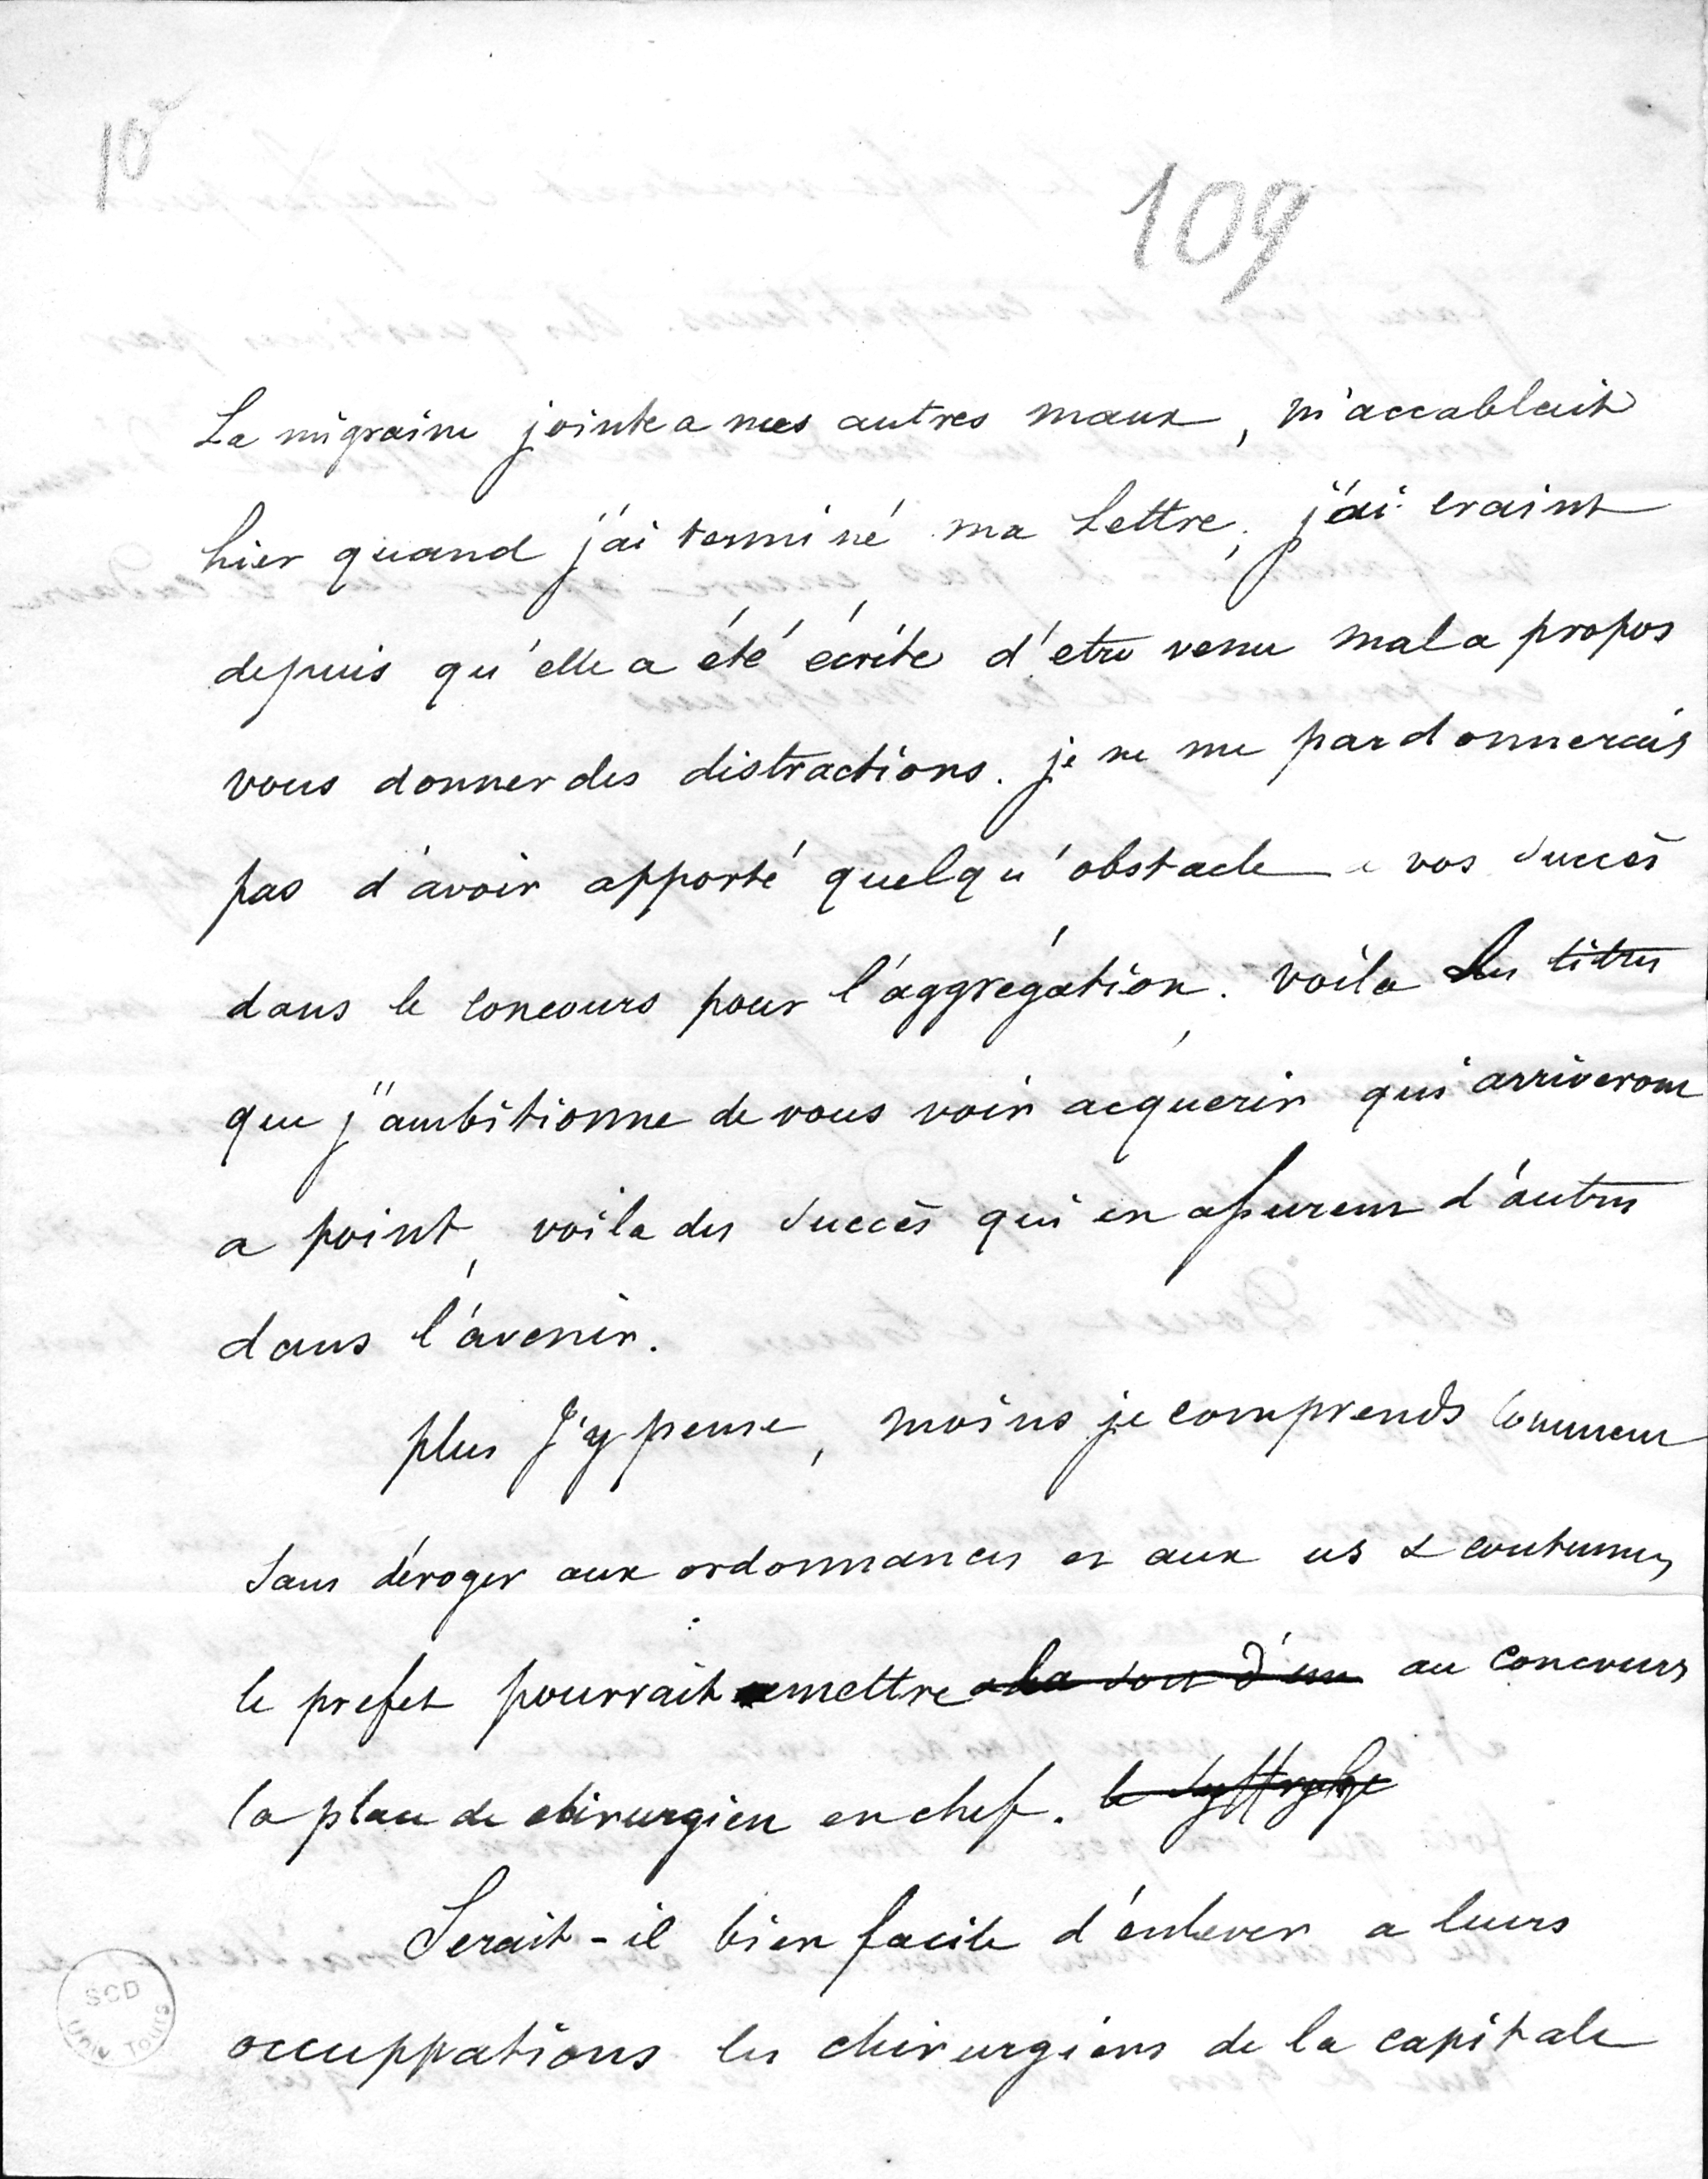 10
109
La migraine jointe a mes autres maux, m'accablait
hier quand j'ai terminé ma Lettre; j'ai craint
depuis qu'elle a été écrite d'etre venu mal a propos
vous donner des distractions. je ne me pardonnerais
pas d'avoir apporté quelqu'obstacle a vos succès
dans le concours pour l'aggrégation. voila des titres
que j'ambitionne de vous voir acquérir qui arriveront
a point, voila des succès qui en assurent d'autres
dans l'avenir.
plus j'y pense, moins je comprends comment
sans déroger aux ordonnances et aux us & coutumes,
le prefet pourrait mettre a la voix d'un au concours
la place de chirurgien en chef. le
Serait-il bien facile d'enlever a leurs
occuppations les chirurgiens de la capitale
SCD
Univ Tours